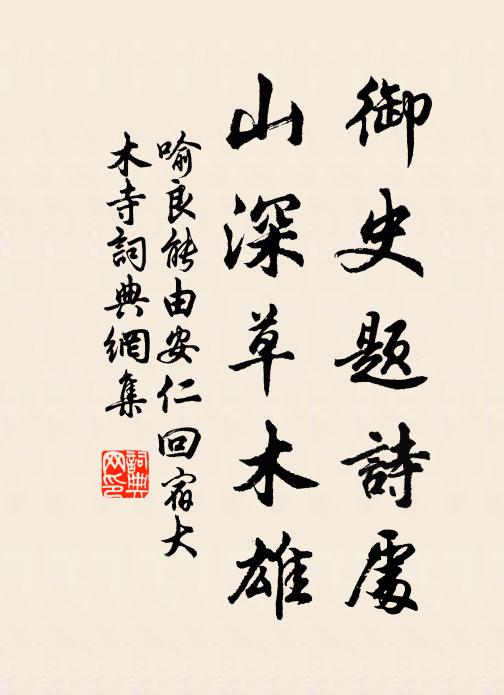 御史題詩處
山深草木雄
喻良能由安仁回宿大
木寺詞典網集
詞典
网印